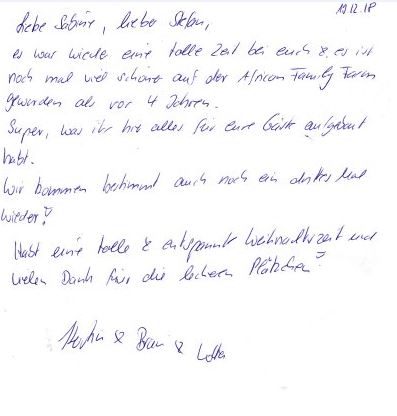 19.12.18
Liebe Sabine, lieber Stefan,
es war wieder eine tolle Zeit bei euch & es ist
noch mal viel schöner auf der African Family Farm
geworden als vor 4 Jahren.
Super, was ihr hier alles für eure Gäste aufgebaut
habt.
Wir kommen bestimmt auch noch ein drittes Mal
wieder!
Habt eine tolle & entspannte Weihnachtszeit und
vielen Dank für die leckeren Plätzchen!
& &